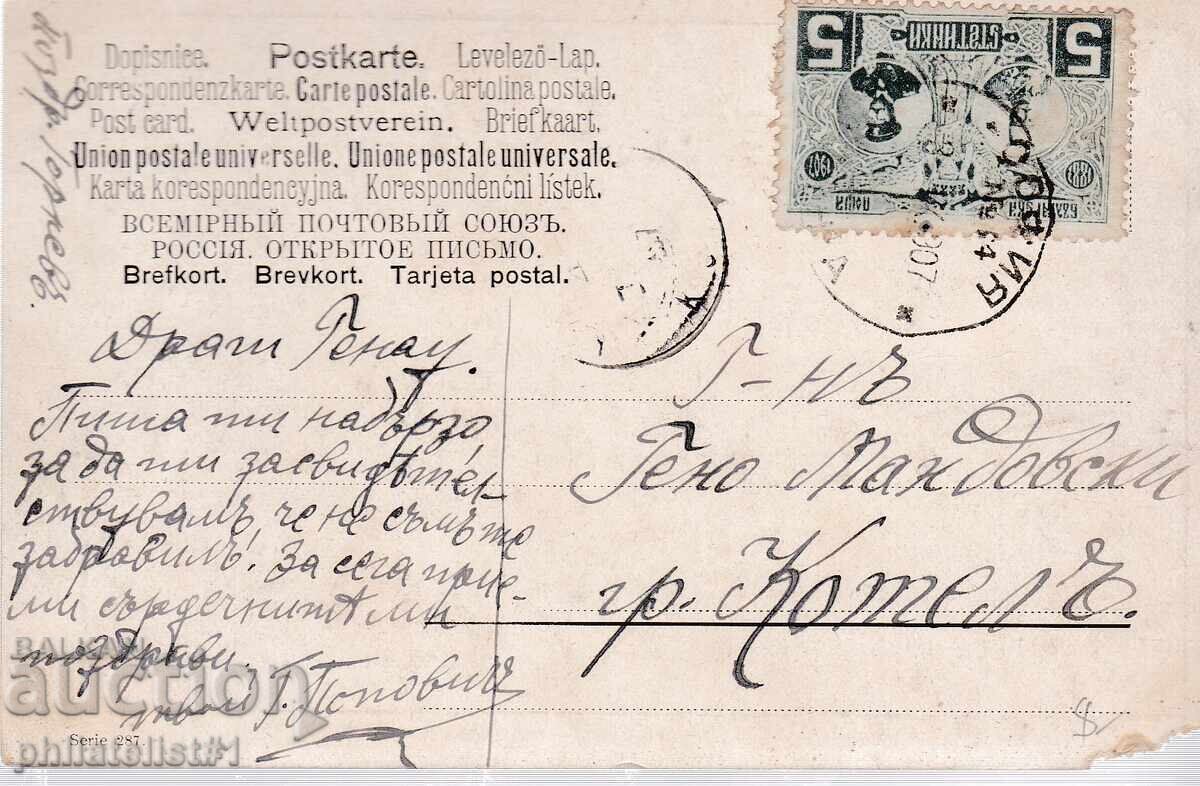 Dopisnice. Postkarte. Levelező-Lap.
Correspondenzkarte. Carte postale. Cartolina postale.
Post card. Weltpostverein. Briefkaart.
Union postale universelle. Unione postale universale.
Karta korespondencyjna. Korespondenčni lístek.
ВСЕМІРНЫЙ ПОЧТОВЫЙ СОЮЗЪ.
РОССІЯ. ОТКРЫТОЕ ПИСЬМО.
Brefkort. Brevkort. Tarjeta postal.
Драги Генчу.
Пиша ти набързо
за да ти засвидѣтел-
ствувамъ, че не съмъ те
забравилъ! За сега прие-
ми сърдечнитѣ ми
поздрави.
твой Г. Поповичъ
Г-нъ
Гено Мандовски
гр. Котелъ.
5 СТОТИНКИ 5
БЪЛГАРСКА ПОЩА
1887 1907
907
Serie 287.
BALKAN
auction
philatelist#1